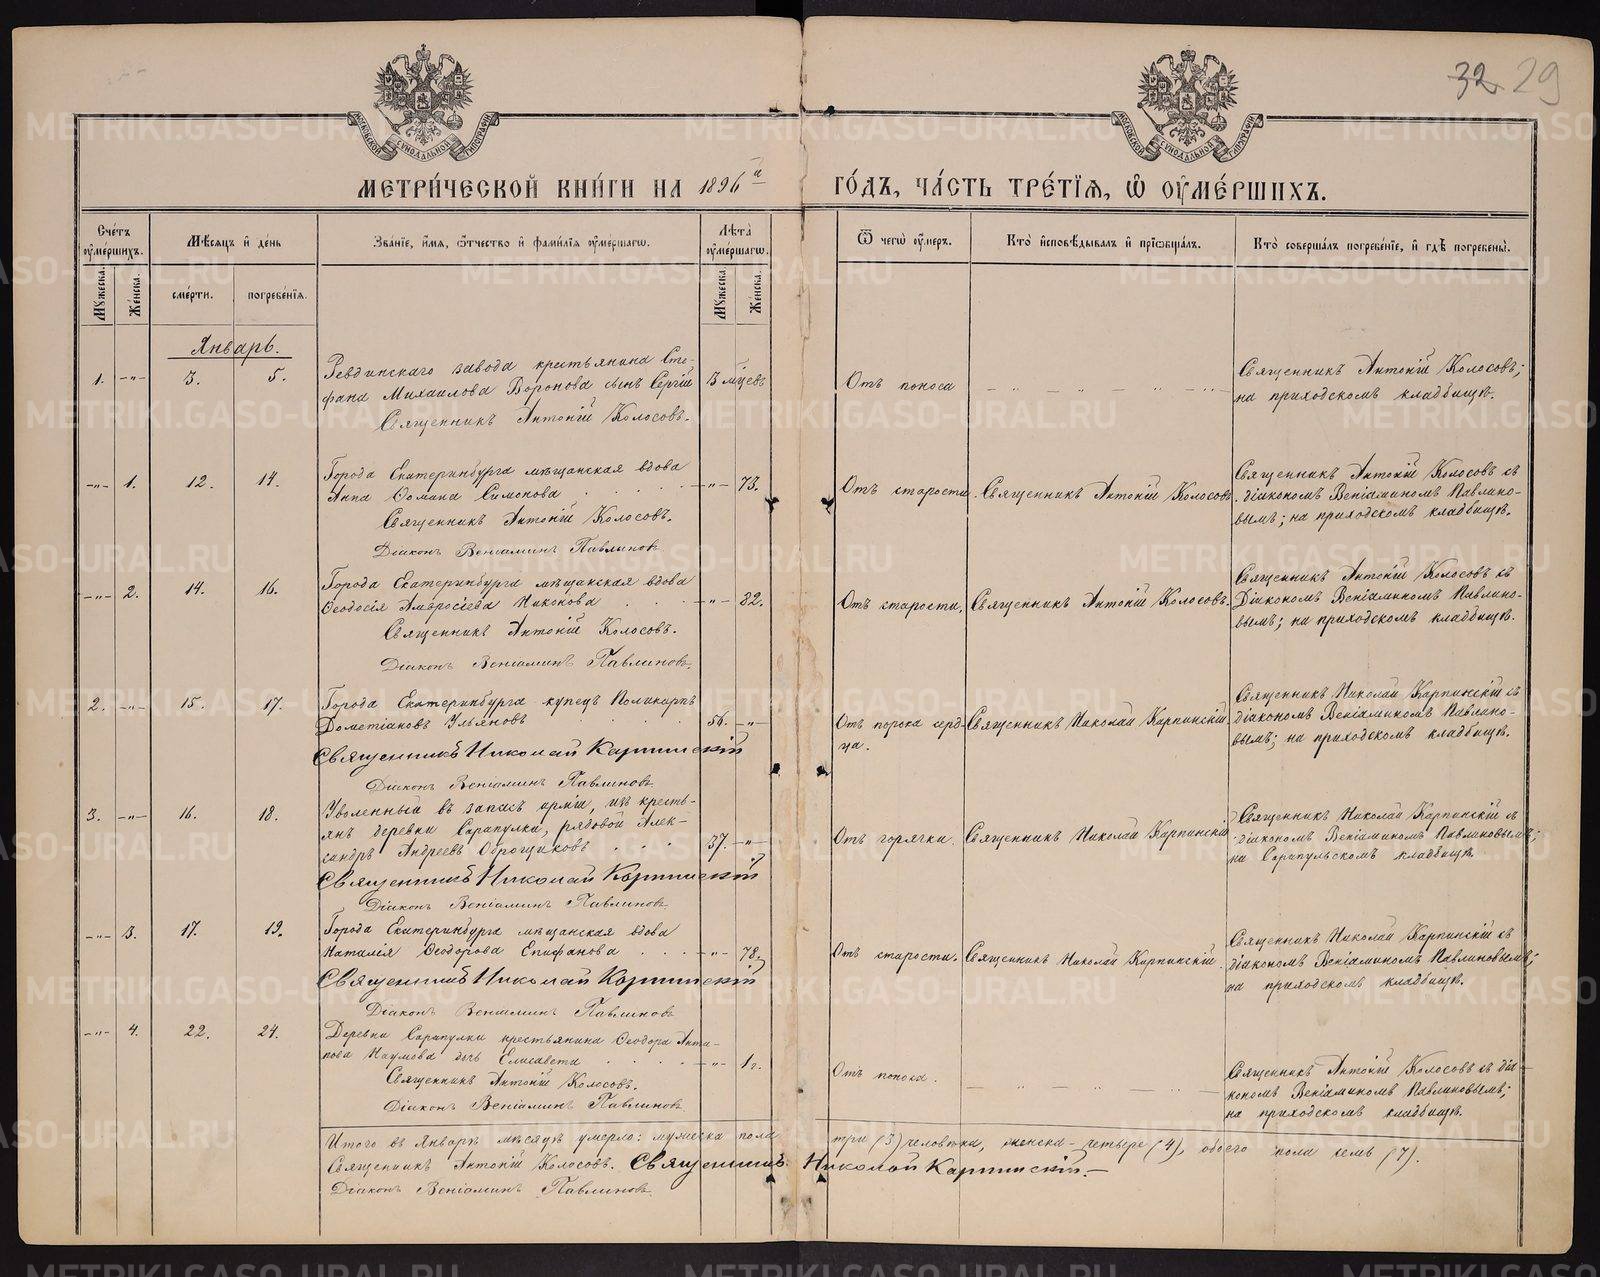 32 29
МОСКОВСКОЙ СѴНОДАЛЬНОЙ ТИПОГРАФІИ
МОСКОВСКОЙ СѴНОДАЛЬНОЙ ТИПОГРАФІИ
МЕТРИ́ЧЕСКОЙ КНИ́ГИ НА 1896й ГО́ДЪ, ЧА́СТЬ ТРЕ́ТІѦ, Ѡ҆ ОУ҆МЕ́РШИХЪ.
Сче́тъ оу҆ме́ршихъ.
Мѣ́сяцъ и҆ де́нь
Зва́ніе, и҆́мя, ѻ҆́тчество и҆ фами́лія оу҆ме́ршагѡ.
Лѣ́та оу҆ме́ршагѡ.
Ѿ чегѡ̀ оу҆́меръ.
Кто̀ и҆сповѣ́дывалъ и҆ прїѡбща́лъ.
Кто̀ соверша́лъ погребе́ніе, и҆ гдѣ̀ погребены̀.
Мꙋ́жеска. Же́нска. сме́рти. погребе́нїя. Мꙋ́жеска. Же́нска.
Январь.
1. -"- 3. 5. Ревдинскаго завода крестьянина Сте-
фана Михаилова Воронова сынъ Сергій 3 мѣсяцевъ
Священникъ Антоній Колосовъ.
Отъ поноса
Священникъ Антоній Колосовъ;
на приходскомъ кладбищѣ.
-"- 1. 12. 14. Города Екатеринбурга мѣщанская вдова
Анна Ѳомина Симонова -"- 73.
Священникъ Антоній Колосовъ.
Діаконъ Веніаминъ Павлиновъ
Отъ старости. Священникъ Антоній Колосовъ.
Священникъ Антоній Колосовъ съ
діакономъ Веніаминомъ Павлино-
вымъ; на приходскомъ кладбищѣ.
-"- 2. 14. 16. Города Екатеринбурга мѣщанская вдова
Ѳеодосія Амвросіева Никонова -"- 82.
Священникъ Антоній Колосовъ.
Діаконъ Веніаминъ Павлиновъ.
Отъ старости. Священникъ Антоній Колосовъ.
Священникъ Антоній Колосовъ съ
Діакономъ Веніаминомъ Павлино-
вымъ; на приходскомъ кладбищѣ.
2. -"- 15. 17. Города Екатеринбурга купецъ Поликарпъ
Дометіановъ Ульяновъ 56. -"-
Священникъ Николай Карпинскій
Діаконъ Веніаминъ Павлиновъ
Отъ порока серд-
ца.
Священникъ Николай Карпинскій.
Священникъ Николай Карпинскій съ
діакономъ Веніаминомъ Павлино-
вымъ; на приходскомъ кладбищѣ.
3. -"- 16. 18. Уволенный въ запасъ арміи, изъ кресть-
янъ деревни Сарапулки, рядовой Алек-
сандръ Андреевъ Оброщиковъ 37. -"-
Священникъ Николай Карпинскій
Діаконъ Веніаминъ Павлиновъ
Отъ горячки. Священникъ Николай Карпинскій
Священникъ Николай Карпинскій съ
діакономъ Веніаминомъ Павлиновымъ;
на Сарапульскомъ кладбищѣ.
-"- 3. 17. 19. Города Екатеринбурга мѣщанская вдова
Наталія Ѳеодорова Епифанова -"- 78.
Священникъ Николай Карпинскій
Діаконъ Веніаминъ Павлиновъ
Отъ старости. Священникъ Николай Карпинскій.
Священникъ Николай Карпинскій съ
діакономъ Веніаминомъ Павлиновымъ;
на приходскомъ кладбищѣ.
-"- 4. 22. 24. Деревни Сарапулки крестьянина Ѳеодора Анти-
пова Наумова дочь Елисавета -"- 1 г.
Священникъ Антоній Колосовъ.
Діаконъ Веніаминъ Павлиновъ
Отъ поноса.
Священникъ Антоній Колосовъ съ діа-
кономъ Веніаминомъ Павлиновымъ;
на приходскомъ кладбищѣ.
Итого въ Январѣ мѣсяцѣ умерло: мужеска пола три (3) человѣка, женска - четыре (4), обоего пола семь (7).
Священникъ Антоній Колосовъ. Священникъ Николай Карпинскій.
Діаконъ Веніаминъ Павлиновъ.
METRIKI.GASO-URAL.RU